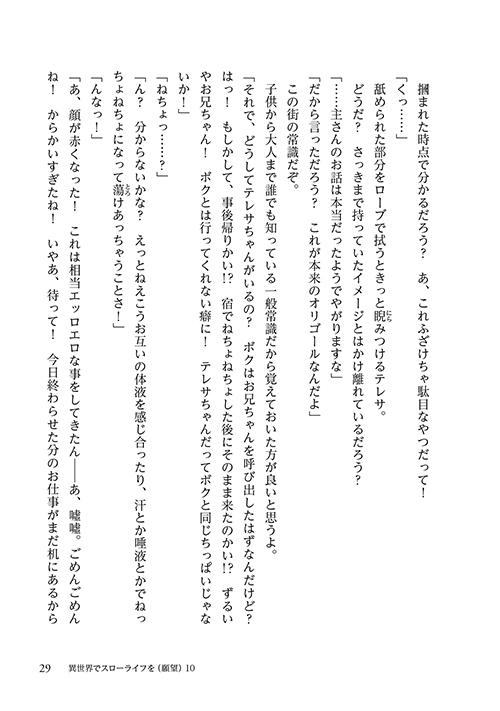 摑まれた時点で分かるだろう？　あ、これふざけちゃ駄目なやつだって！
「くっ……」
舐められた部分をローブで拭うときっと睨みつけるテレサ。
にら
どうだ？　さっきまで持っていたイメージとはかけ離れているだろう？
「……主さんのお話は本当だったようでやがりますな」
「だから言っただろう？　これが本来のオリゴールなんだよ」
この街の常識だぞ。
子供から大人まで誰でも知っている一般常識だから覚えておいた方が良いと思うよ。
「それで、どうしてテレサちゃんがいるの？　ボクはお兄ちゃんを呼び出したはずなんだけど？
はっ！　もしかして、事後帰りかい!?　宿でねちょねちょした後にそのまま来たのかい!?　ずるい
やお兄ちゃん！　ボクとは行ってくれない癖に！　テレサちゃんだってボクと同じちっぱいじゃな
いか！」
「ねちょっ……？」
「ん？　分からないかな？　えっとねえこうお互いの体液を感じ合ったり、汗とか唾液とかでねっ
ちょねちょになって蕩けあっちゃうことさ！」
とろ
「んなっ！」
「あ、顔が赤くなった！　これは相当エッロエロな事をしてきたん――あ、嘘嘘。ごめんごめん
ね！　からかいすぎたね！　いやあ、待って！　今日終わらせた分のお仕事がまだ机にあるから
29　異世界でスローライフを（願望）10